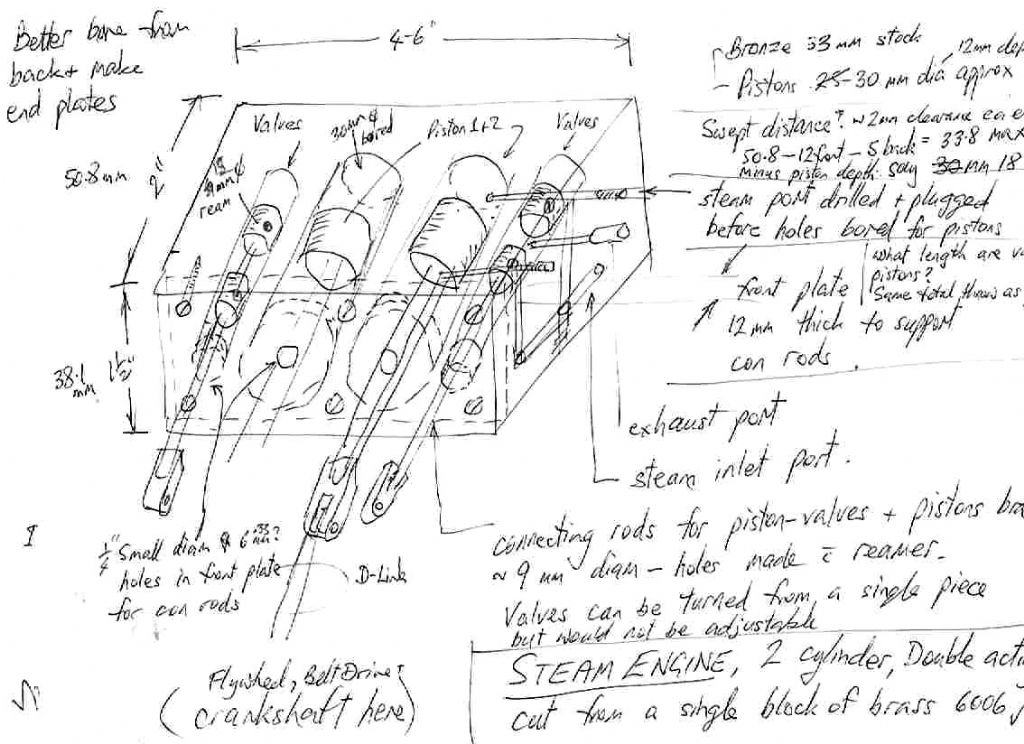 Better bore from
back + make
end plates
4-6"
Bronze 33 mm stock
12mm dep
- Pistons 25-30 mm dia approx
Valves
30mm φ
bored
Piston 1+2
Valves
Swept distance? w 2mm clearance ea e
50.8-12front-5 back = 33.8 max
minus piston depth: say 30mm 18
50.8mm
2"
9mm φ
ream
steam port drilled + plugged
before holes bored for pistons
what length are va
pistons?
Same total throw as
front plate
12 mm thick to support
con rods.
38.1
mm
1½"
exhaust port
steam inlet port.
connecting rods for piston-valves + pistons bra
~ 9 mm diam - holes made c̄ reamer.
Valves can be turned from a single piece
but would not be adjustable
¼" Small diam φ 6.35 mm?
holes in front plate
for con rods
D-Link
Flywheel, Belt Drive?
(crankshaft here)
STEAM ENGINE, 2 cylinder, Double acti
cut from a single block of brass 6006